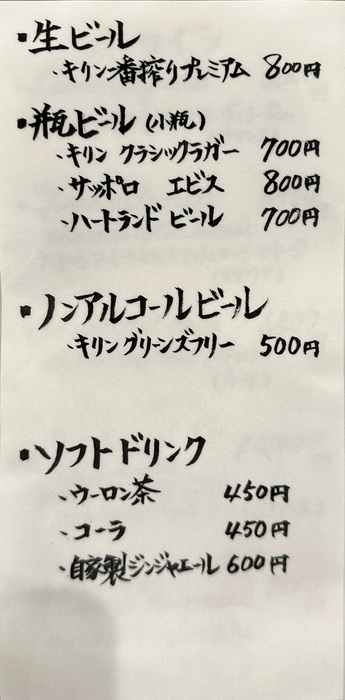 ・生ビール
・キリン一番搾りプレミアム 800円
・瓶ビール (小瓶)
・キリン クラシックラガー 700円
・サッポロ エビス 800円
・ハートランド ビール 700円
・ノンアルコールビール
・キリン グリーンズフリー 500円
・ソフトドリンク
・ウーロン茶 450円
・コーラ 450円
・自家製ジンジャエール 600円